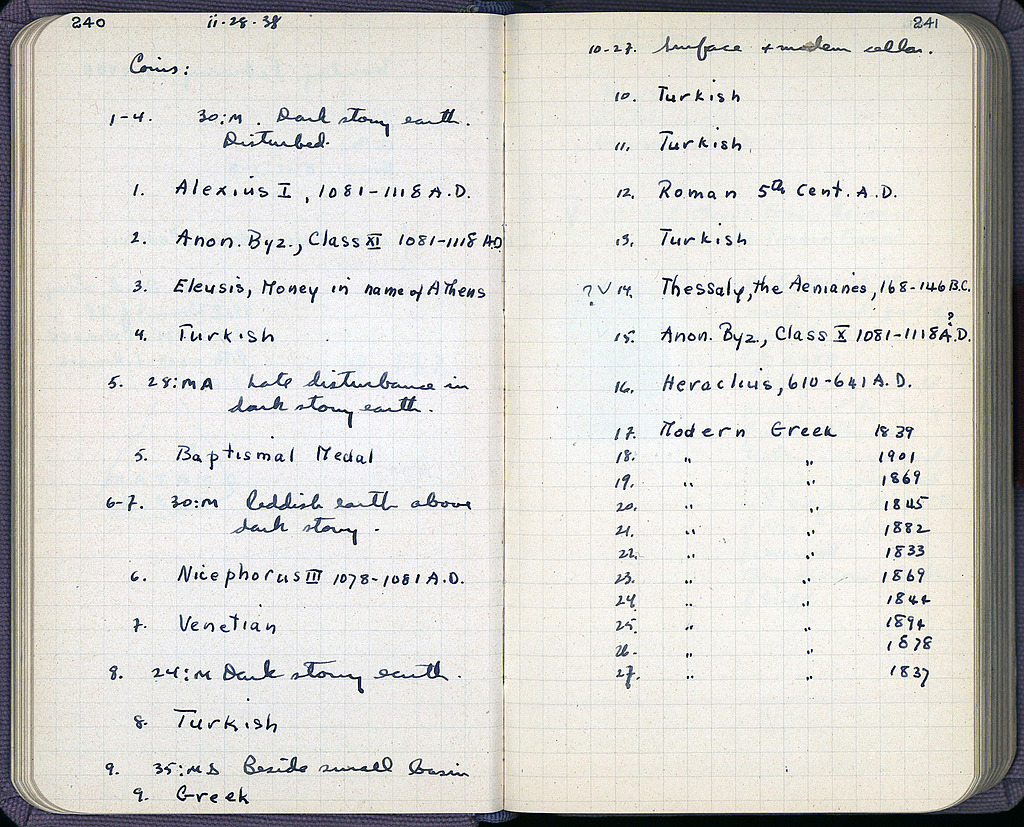 240
ii-28-38
Coins:
1-4. 30:M. Dark stony earth.
Disturbed.
1. Alexius I, 1081-1118 A.D.
2. Anon. Byz., Class XI 1081-1118 AD
3. Eleusis, Money in name of Athens
4. Turkish
5. 28:MA Late disturbance in
dark stony earth.
5. Baptismal Medal
6-7. 30:M Reddish earth above
dark stony.
6. Nicephorus III 1078-1081 A.D.
7. Venetian
8. 24:M Dark stony earth.
8. Turkish
9. 35:MΔ Beside small basin
9. Greek
241
10-27. Surface + modern cellar.
10. Turkish
11. Turkish
12. Roman 5th Cent. A.D.
13. Turkish
? √ 14. Thessaly, the Aenianes, 168-146 B.C.
15. Anon. Byz., Class X 1081-1118 A.D. ?
16. Heraclius, 610-641 A.D.
17. Modern Greek 1839
18. " " 1901
19. " " 1869
20. " " 1845
21. " " 1882
22. " " 1833
23. " " 1869
24. " " 1844
25. " " 1894
26. " " 1878
27. " " 1837